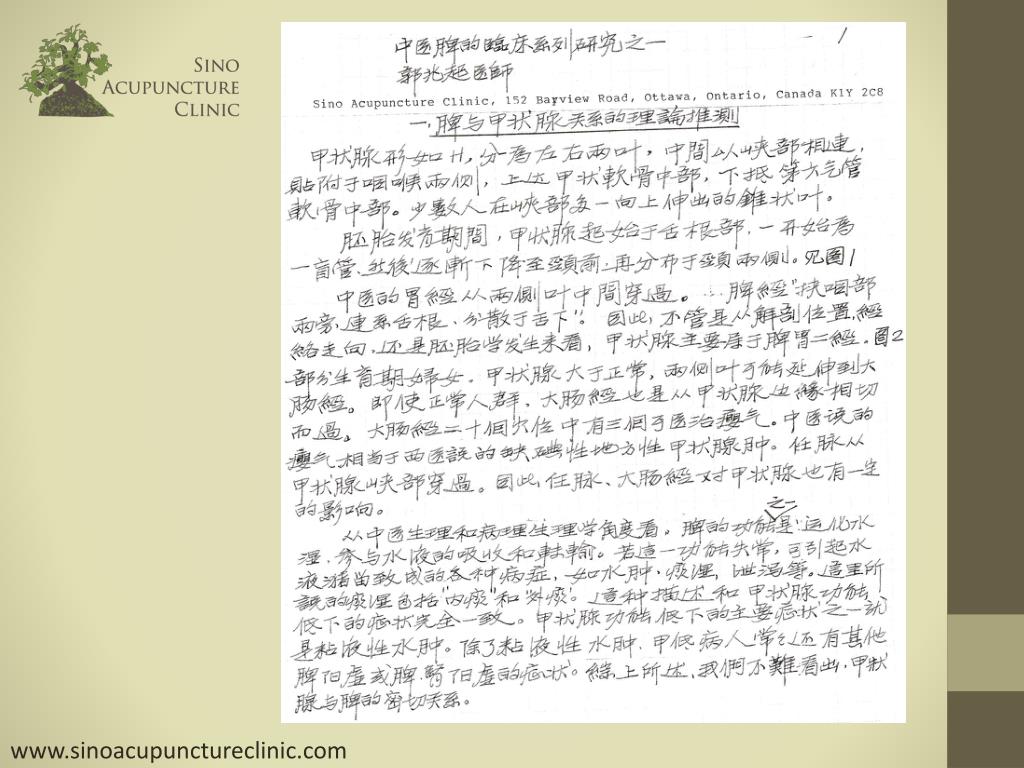 SINO
ACUPUNCTURE
CLINIC
中医脾的臨床系列研究之一
— 1
郭兆起医師
Sino Acupuncture Clinic, 152 Bayview Road, Ottawa, Ontario, Canada K1Y 2C8
一.脾与甲状腺关系的理論推測
甲状腺形如H,分為左右兩叶,中間以峡部相連,
貼附于咽喉兩側,上达甲状軟骨中部,下抵第六气管
軟骨中部。少數人在峡部多一向上伸出的錐状叶。
胚胎发育期間,甲状腺起始于舌根部.一开始為
一盲管.然後逐漸下降至頸前.再分布于頸兩側。見图1
中医的胃經从兩側叶中間穿過。...脾經"挟咽部
兩旁.連系舌根.分散于舌下"。因此,不管是从解剖位置,經
絡走向,还是胚胎学发生来看,甲状腺主要居于脾胃二經.图2
部分生育期婦女.甲状腺大于正常,兩側叶可能延伸到大
肠經。即使正常人群.大肠經也是从甲状腺边緣相切
而過。大肠經二十個穴位中有三個可医治癭气。中医说的
癭气相当于西医説的缺碘性地方性甲状腺肿。任脉从
甲状腺峡部穿過。因此任脉、大肠經对甲状腺也有一定
的影响。
从中医生理和病理生理学角度看.脾的功能之一是:运化水
湿.参与水液的吸收和転輸。若這一功能失常,可引起水
液潴留致成的各种病症,如水肿.痰湿,泄泻等。這里所
説的痰湿包括"内痰"和"外痰"。這种描述和甲状腺功能
低下的症状完全一致。甲状腺功能低下的主要症状之一就
是粘液性水肿。除了粘液性水肿.甲低病人常々还有其他
脾阳虚或脾腎阳虚的症状。綜上所述,我們不難看出,甲状
腺与脾的密切关系。
www.sinoacupunctureclinic.com